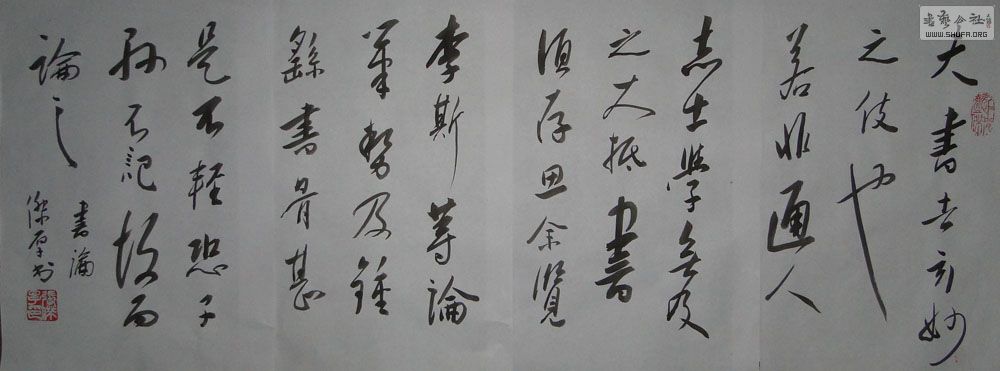 大書者玄妙
之伎也
若非通人
志士學無及
之大抵書
須存思余覽
李斯等論
筆勢及鍾
繇書骨甚
是不輕恐子
孫不記故而
論之
書論
書藝公社
WWW.SHUFA.ORG